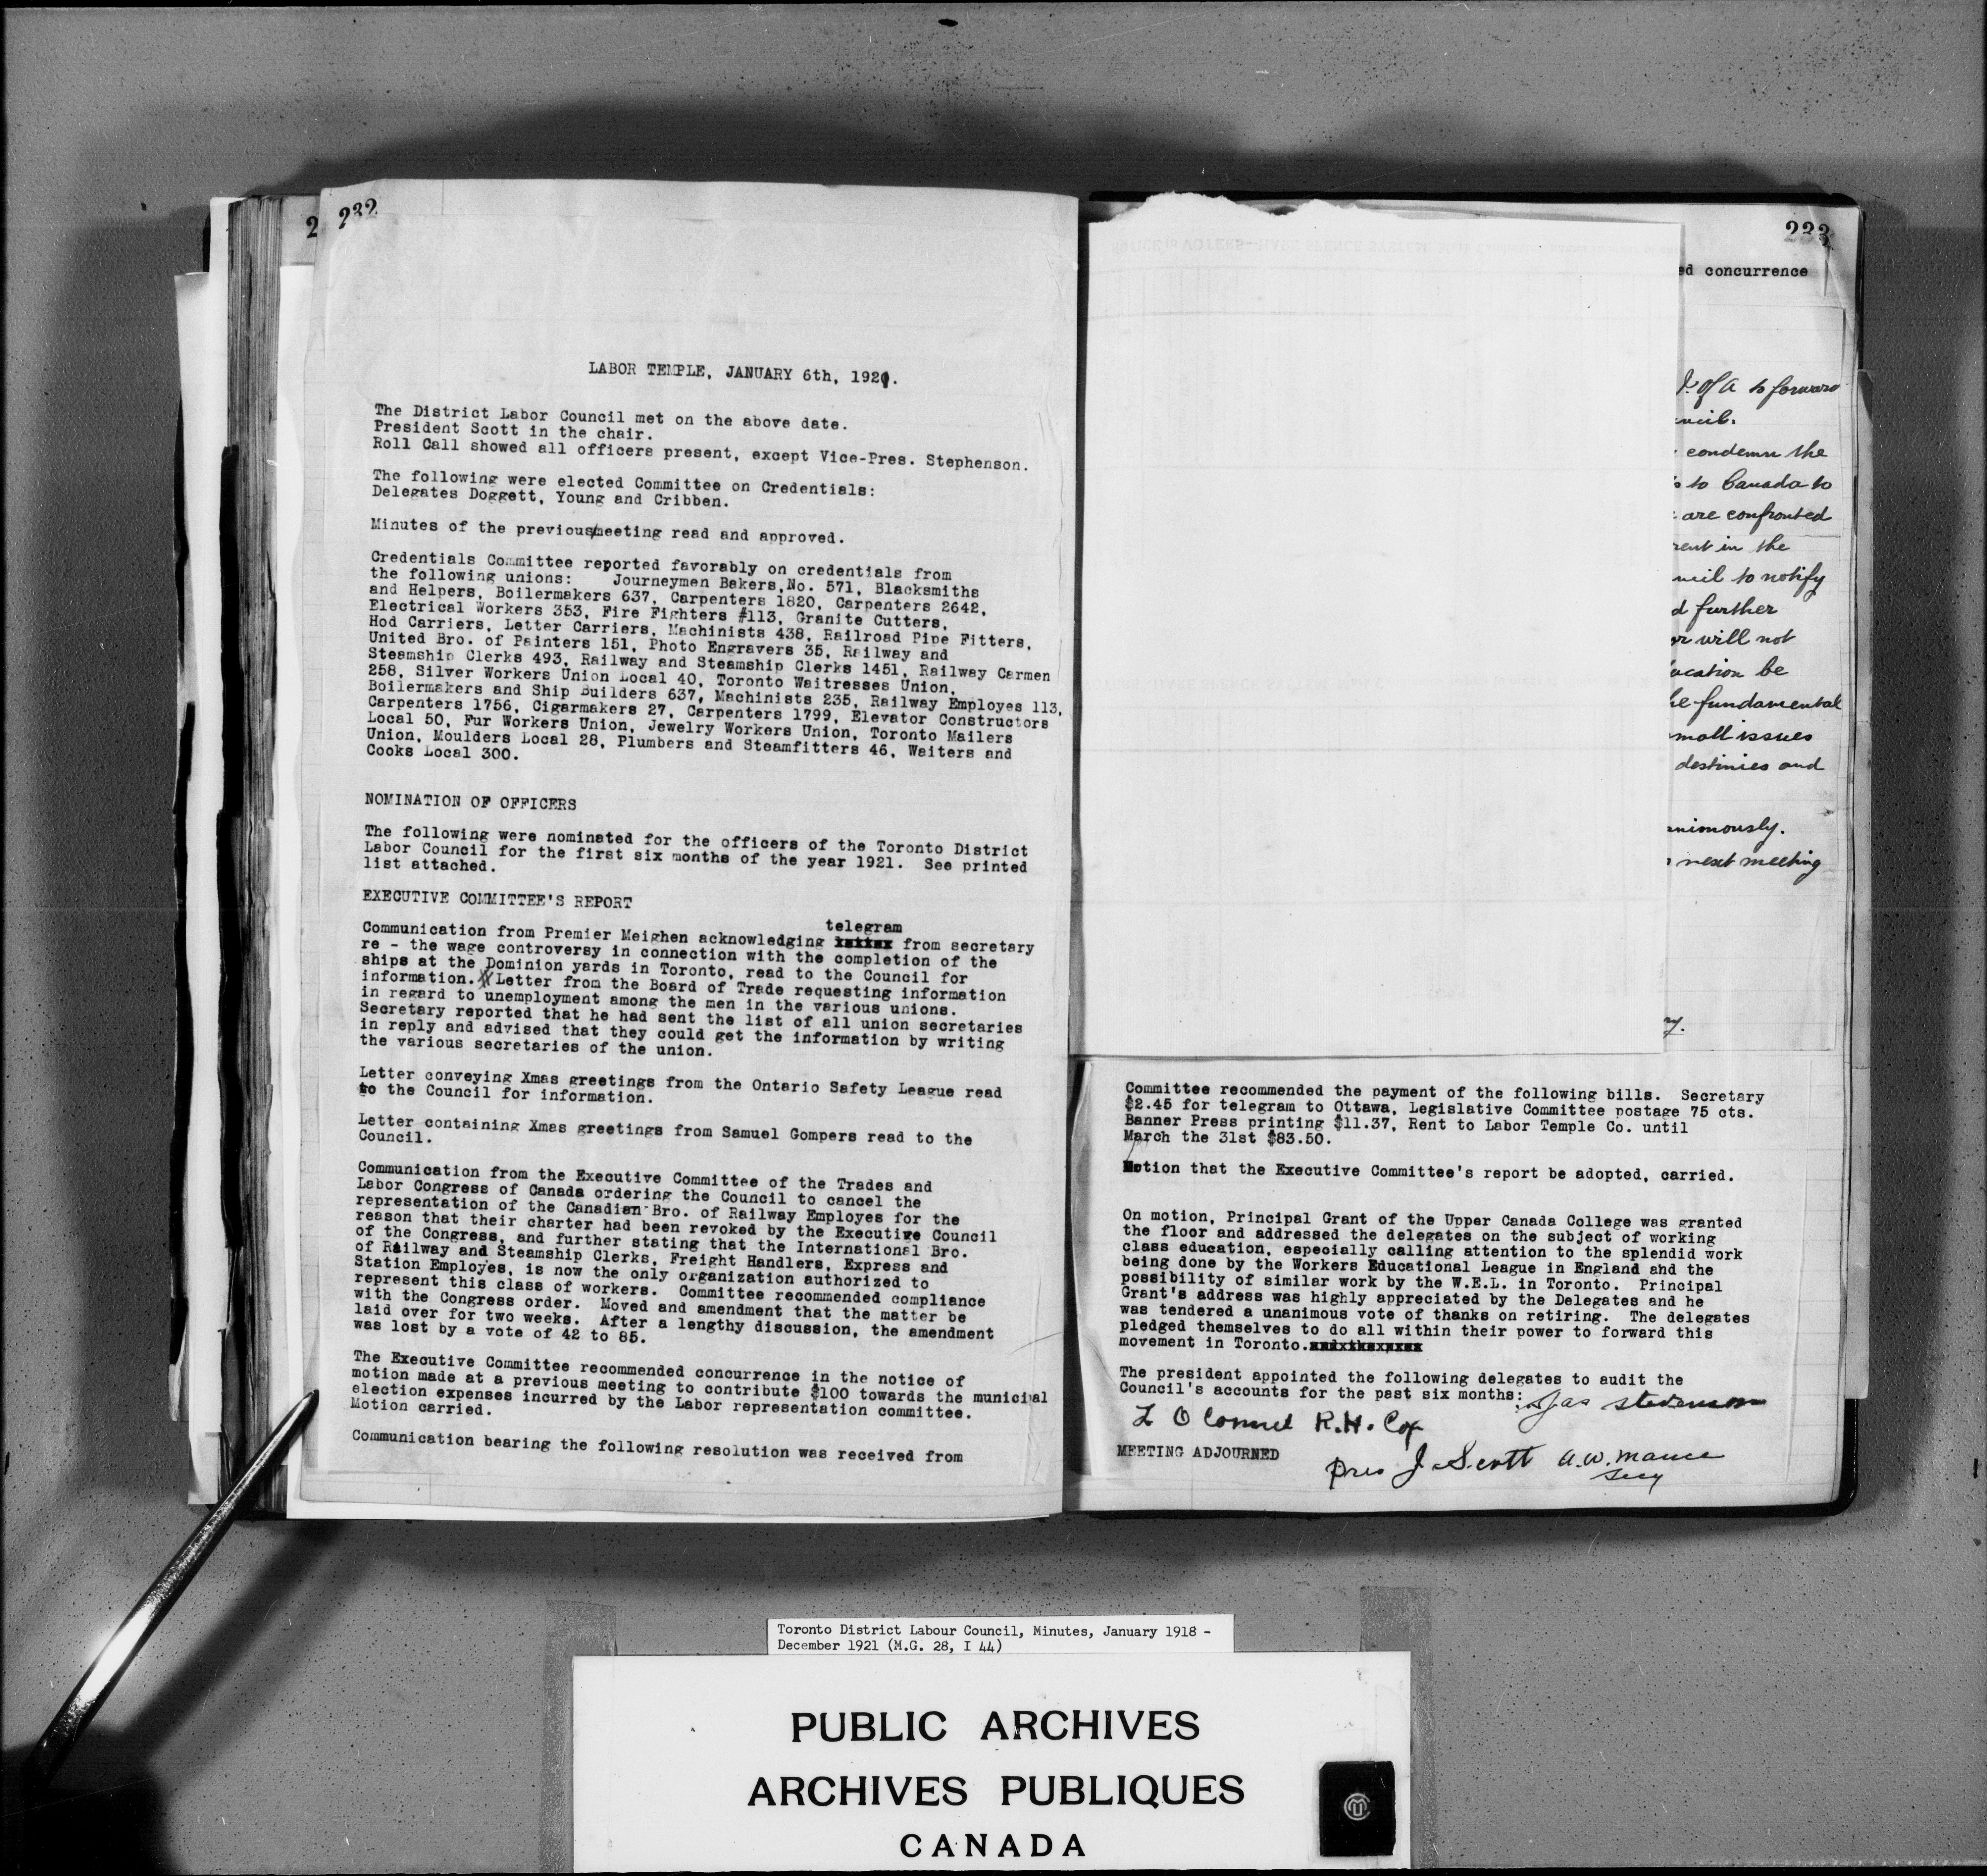 232
LABOR TEMPLE, JANUARY 6th, 1921.
The District Labor Council met on the above date.
President Scott in the chair.
Roll Call showed all officers present, except Vice-Pres. Stephenson.
The following were elected Committee on Credentials:
Delegates Doggett, Young and Cribben.
Minutes of the previous/meeting read and approved.
Credentials Committee reported favorably on credentials from
the following unions: Journeymen Bakers,No. 571, Blacksmiths
and Helpers, Boilermakers 637, Carpenters 1820, Carpenters 2642,
Electrical Workers 353, Fire Fighters #113, Granite Cutters,
Hod Carriers, Letter Carriers, Machinists 438, Railroad Pipe Fitters,
United Bro. of Painters 151, Photo Engravers 35, Railway and
Steamship Clerks 493, Railway and Steamship Clerks 1451, Railway Carmen
258, Silver Workers Union Local 40, Toronto Waitresses Union,
Boilermakers and Ship Builders 637, Machinists 235, Railway Employes 113,
Carpenters 1756, Cigarmakers 27, Carpenters 1799, Elevator Constructors
Local 50, Fur Workers Union, Jewelry Workers Union, Toronto Mailers
Union, Moulders Local 28, Plumbers and Steamfitters 46, Waiters and
Cooks Local 300.
NOMINATION OF OFFICERS
The following were nominated for the officers of the Toronto District
Labor Council for the first six months of the year 1921. See printed
list attached.
EXECUTIVE COMMITTEE'S REPORT
telegram
Communication from Premier Meighen acknowledging from secretary
re - the wage controversy in connection with the completion of the
ships at the Dominion yards in Toronto, read to the Council for
information. Letter from the Board of Trade requesting information
in regard to unemployment among the men in the various unions.
Secretary reported that he had sent the list of all union secretaries
in reply and advised that they could get the information by writing
the various secretaries of the union.
Letter conveying Xmas greetings from the Ontario Safety League read
to the Council for information.
Letter containing Xmas greetings from Samuel Gompers read to the
Council.
Communication from the Executive Committee of the Trades and
Labor Congress of Canada ordering the Council to cancel the
representation of the Canadian Bro. of Railway Employes for the
reason that their charter had been revoked by the Executive Council
of the Congress, and further stating that the International Bro.
of Railway and Steamship Clerks, Freight Handlers, Express and
Station Employes, is now the only organization authorized to
represent this class of workers. Committee recommended compliance
with the Congress order. Moved and amendment that the matter be
laid over for two weeks. After a lengthy discussion, the amendment
was lost by a vote of 42 to 85.
The Executive Committee recommended concurrence in the notice of
motion made at a previous meeting to contribute $100 towards the municipal
election expenses incurred by the Labor representation committee.
Motion carried.
Communication bearing the following resolution was received from
233
ed concurrence
of a to forward
condemn the
to Canada to
are confronted
in the
to notify
further
will not
be
fundamental
small issues
destinies and
next meeting
Committee recommended the payment of the following bills. Secretary
$2.45 for telegram to Ottawa, Legislative Committee postage 75 cts.
Banner Press printing $11.37, Rent to Labor Temple Co. until
March the 31st $83.50.
Motion that the Executive Committee's report be adopted, carried.
On motion, Principal Grant of the Upper Canada College was granted
the floor and addressed the delegates on the subject of working
class education, especially calling attention to the splendid work
being done by the Workers Educational League in England and the
possibility of similar work by the W.E.L. in Toronto. Principal
Grant's address was highly appreciated by the Delegates and he
was tendered a unanimous vote of thanks on retiring. The delegates
pledged themselves to do all within their power to forward this
movement in Toronto.
The president appointed the following delegates to audit the
Council's accounts for the past six months: Jas Stevenson
L O Connel R.H. Cox
MEETING ADJOURNED
Pres J. Scott A.W. Mance
Secy
Toronto District Labour Council, Minutes, January 1918 -
December 1921 (M.G. 28, I 44)
PUBLIC ARCHIVES
ARCHIVES PUBLIQUES
CANADA